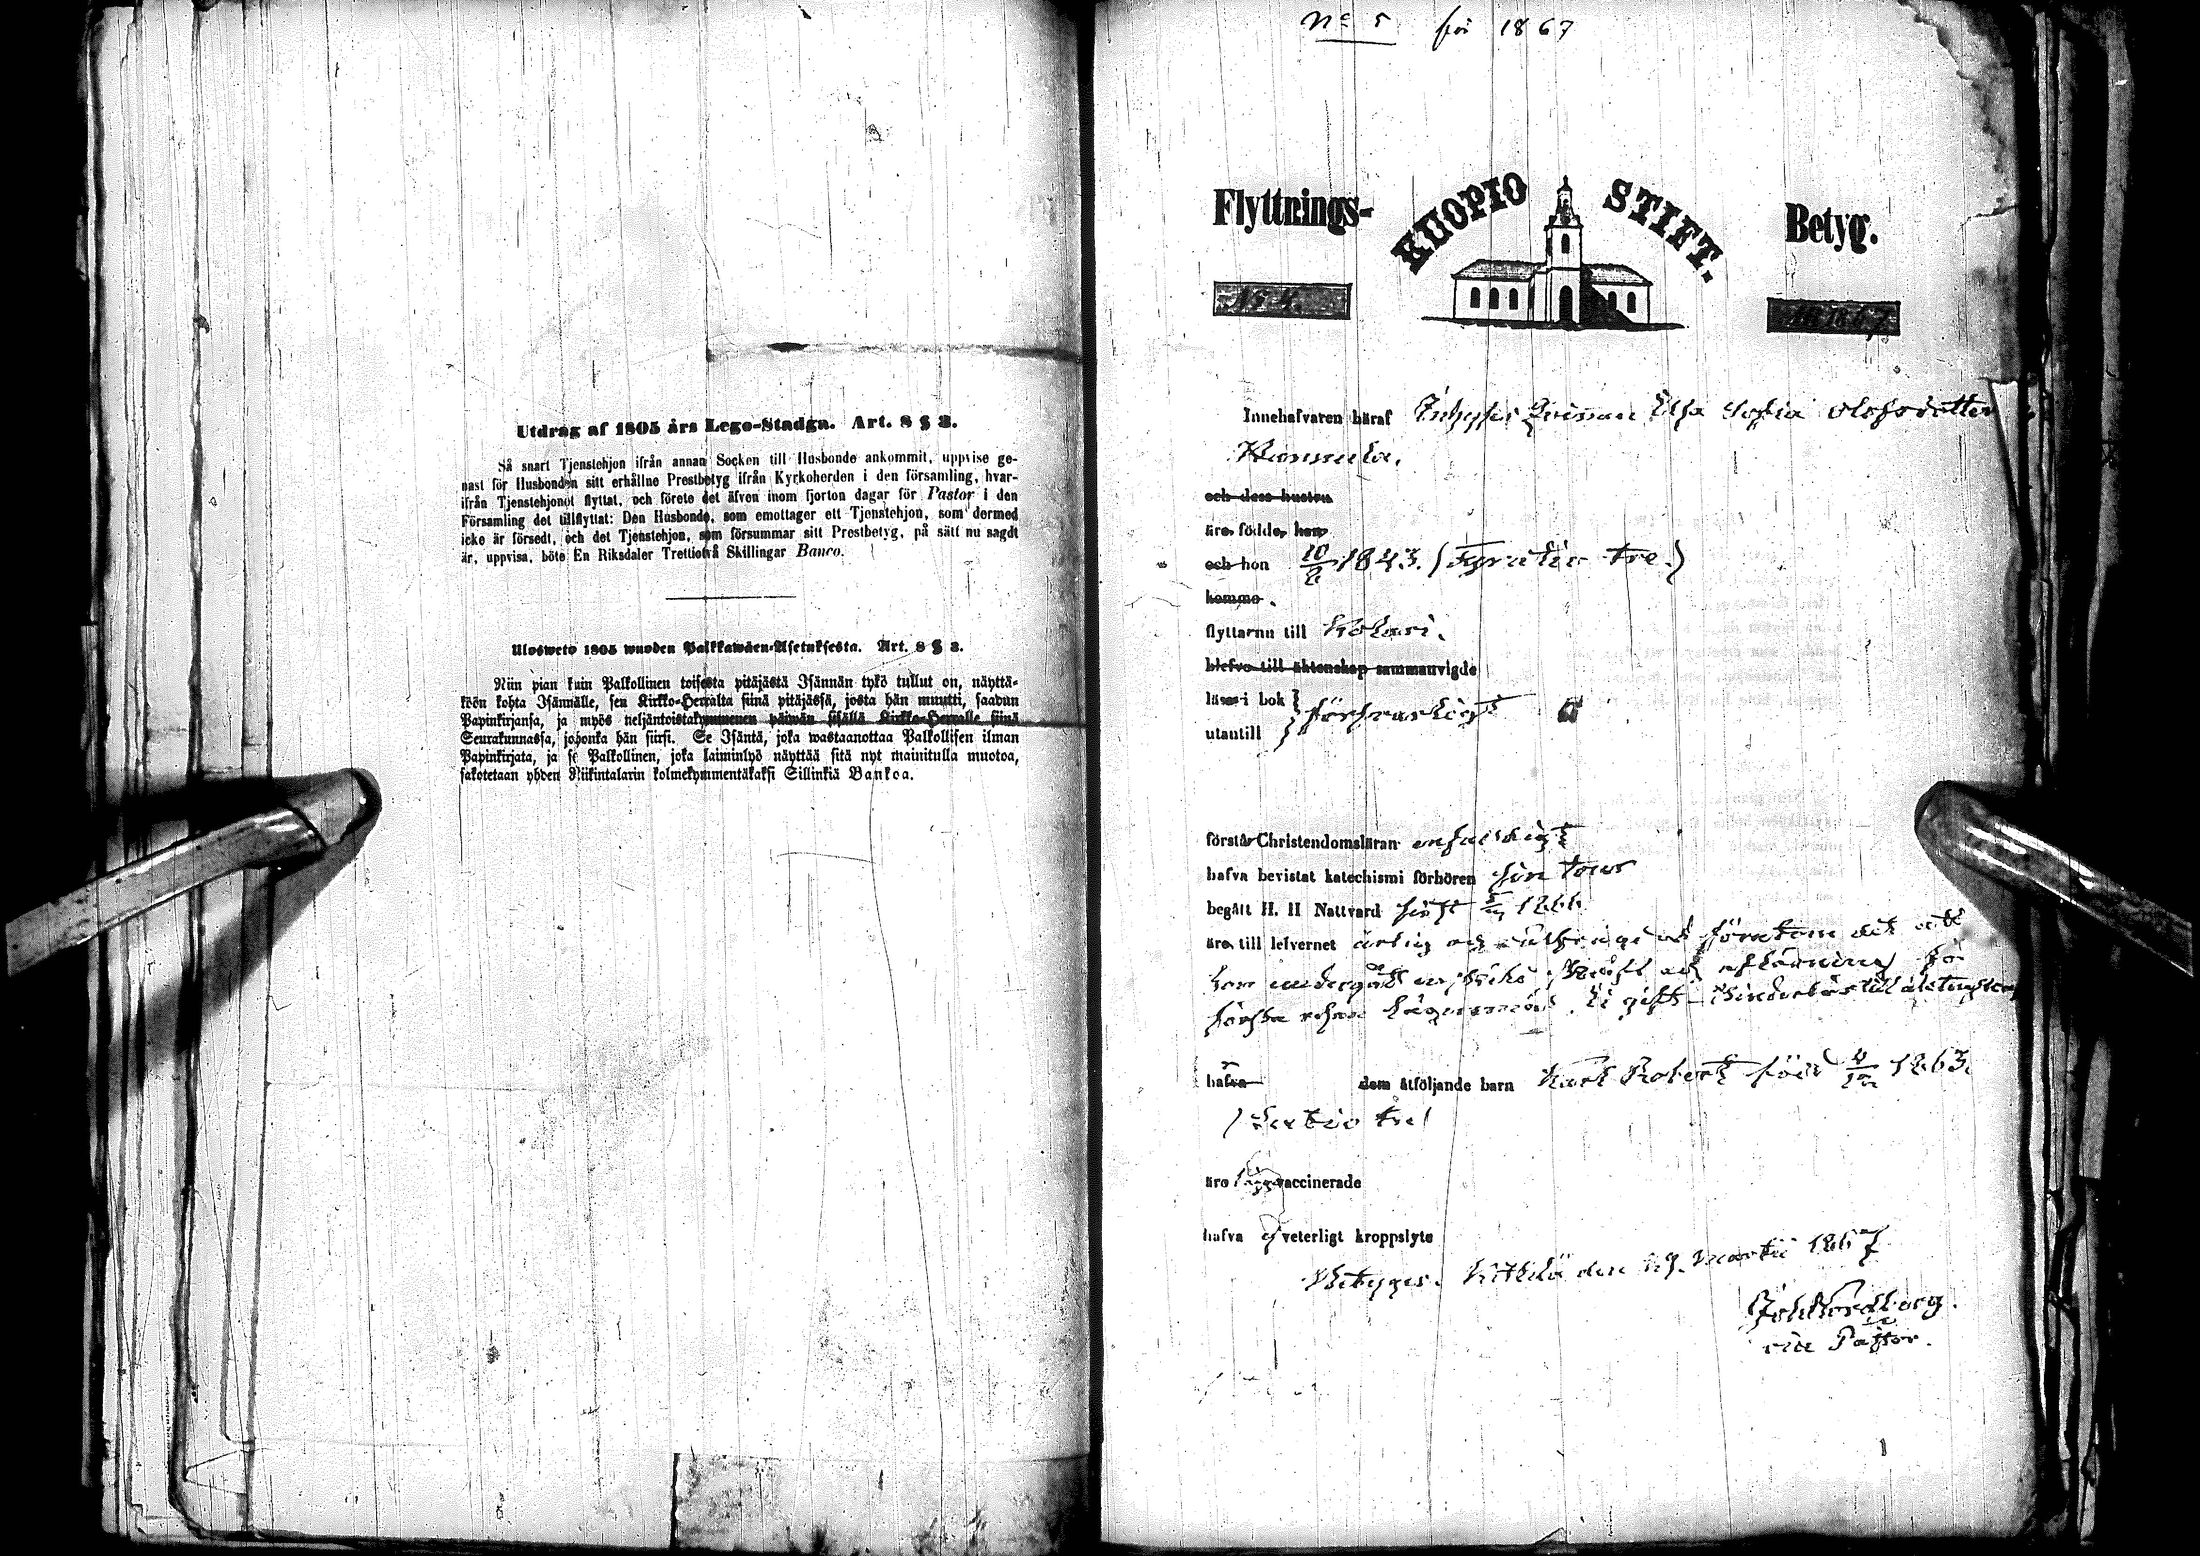 Utdrag af 1805 års Lego-Stadga. Art. 8 § 3.
Så snart Tjenstehjon ifrån annan Socken till Husbonde ankommit, uppvise ge-
nast för Husbonden sitt erhållne Prestbetyg ifrån Kyrkoherden i den församling, hvar-
ifrån Tjenstehjonet flyttat, och förete det äfven inom fjorton dagar för Pastor i den
Församling det tillflyttat: Den Husbonde, som emottager ett Tjenstehjon, som dermed
icke är försedt, och det Tjenstehjon, som försummar sitt Prestbetyg, på sätt nu sagdt
är, uppvisa, böte En Riksdaler Trettiotvå Skillingar Banco.
Ulosweto 1805 wuoden Palkkawäen-Asetuksesta. Art. 8 § 3.
Niin pian kuin Palkollinen toisesta pitäjästä Isännän tykö tullut on, näyttä-
köön kohta Isännälle, sen Kirkko-Herralta siinä pitäjässä, josta hän muutti, saadun
Papinkirjansa, ja myös neljäntoistakymmenen päiwän sisällä Kirkko-Herralle siinä
Seurakunnassa, johonka hän siirsi. Se Isäntä, joka wastaanottaa Palkollisen ilman
Papinkirjata, ja se Palkollinen, joka laiminlyö näyttää sitä nyt mainitulla muotoa,
sakotetaan yhden Riikintalarin kolmekymmentäkaksi Sillinkiä Bankoa.
No 5 för 1867
Flyttnings- KUOPIO STIFT. Betyg.
No 4. 1867
Innehafvaren häraf Inhyses Qvinnan Elsa Sofia Olofsdotter
Hannula.
och dess hustru
äro födde, han
och hon 10/8 1843. (Fyratio tre.)
kommo
flyttarnu till Kolari.
blefvo till äktenskap sammanvigde
läser i bok
utantill försvarligt
förstår Christendomsläran enfaldigt
hafva bevistat katechismi förhören
begått H. H Nattvard sist 1866
äro till lefvernet ärlig och förutom det att
hon undergått och aflösning för
första resan lägersmål. Ej gift. Hinderlös till äktenskap
hafva dem åtföljande barn Karl Robert född 4/12 1863.
(Sextio tre)
äro vaccinerade
hafva ej veterligt kroppslyte
Betyges. Kittilä den 19. Martii 1867
Joh Nordberg.
vice Pastor.